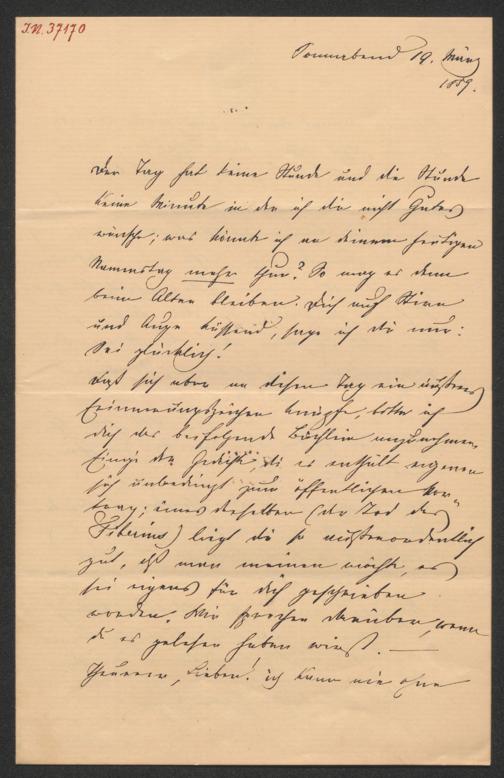 I.N. 37170
Sonnabend 19. März
1859.
Der Tag hat keine Stunde und die Stunde
keine Minute in der ich dir nicht Gutes
wünsche; was könnte ich an deinem heutigen
Namenstag mehr thun? So mag es denn
beim Alten bleiben. Dich auf Stirn
und Auge küssend, sage ich dir nur:
Sei glücklich!
Daß sich aber an diesen Tag ein äußeres
Erinnerungszeichen knüpfe, bitte ich
dich das beifolgende Büchlein anzunehmen.
Einige der Gedichte die es enthält eignen
sich unbedingt zum öffentlichen Vor-
trag; eines derselben (der Tod des
Tiberius) liegt dir so außerordentlich
gut, daß man meinen möchte, es
sei eigens für dich geschrieben
worden. Wir sprechen darüber, wenn
du es gelesen haben wirst. —
Theurer, Lieber! ich kann nie ohne